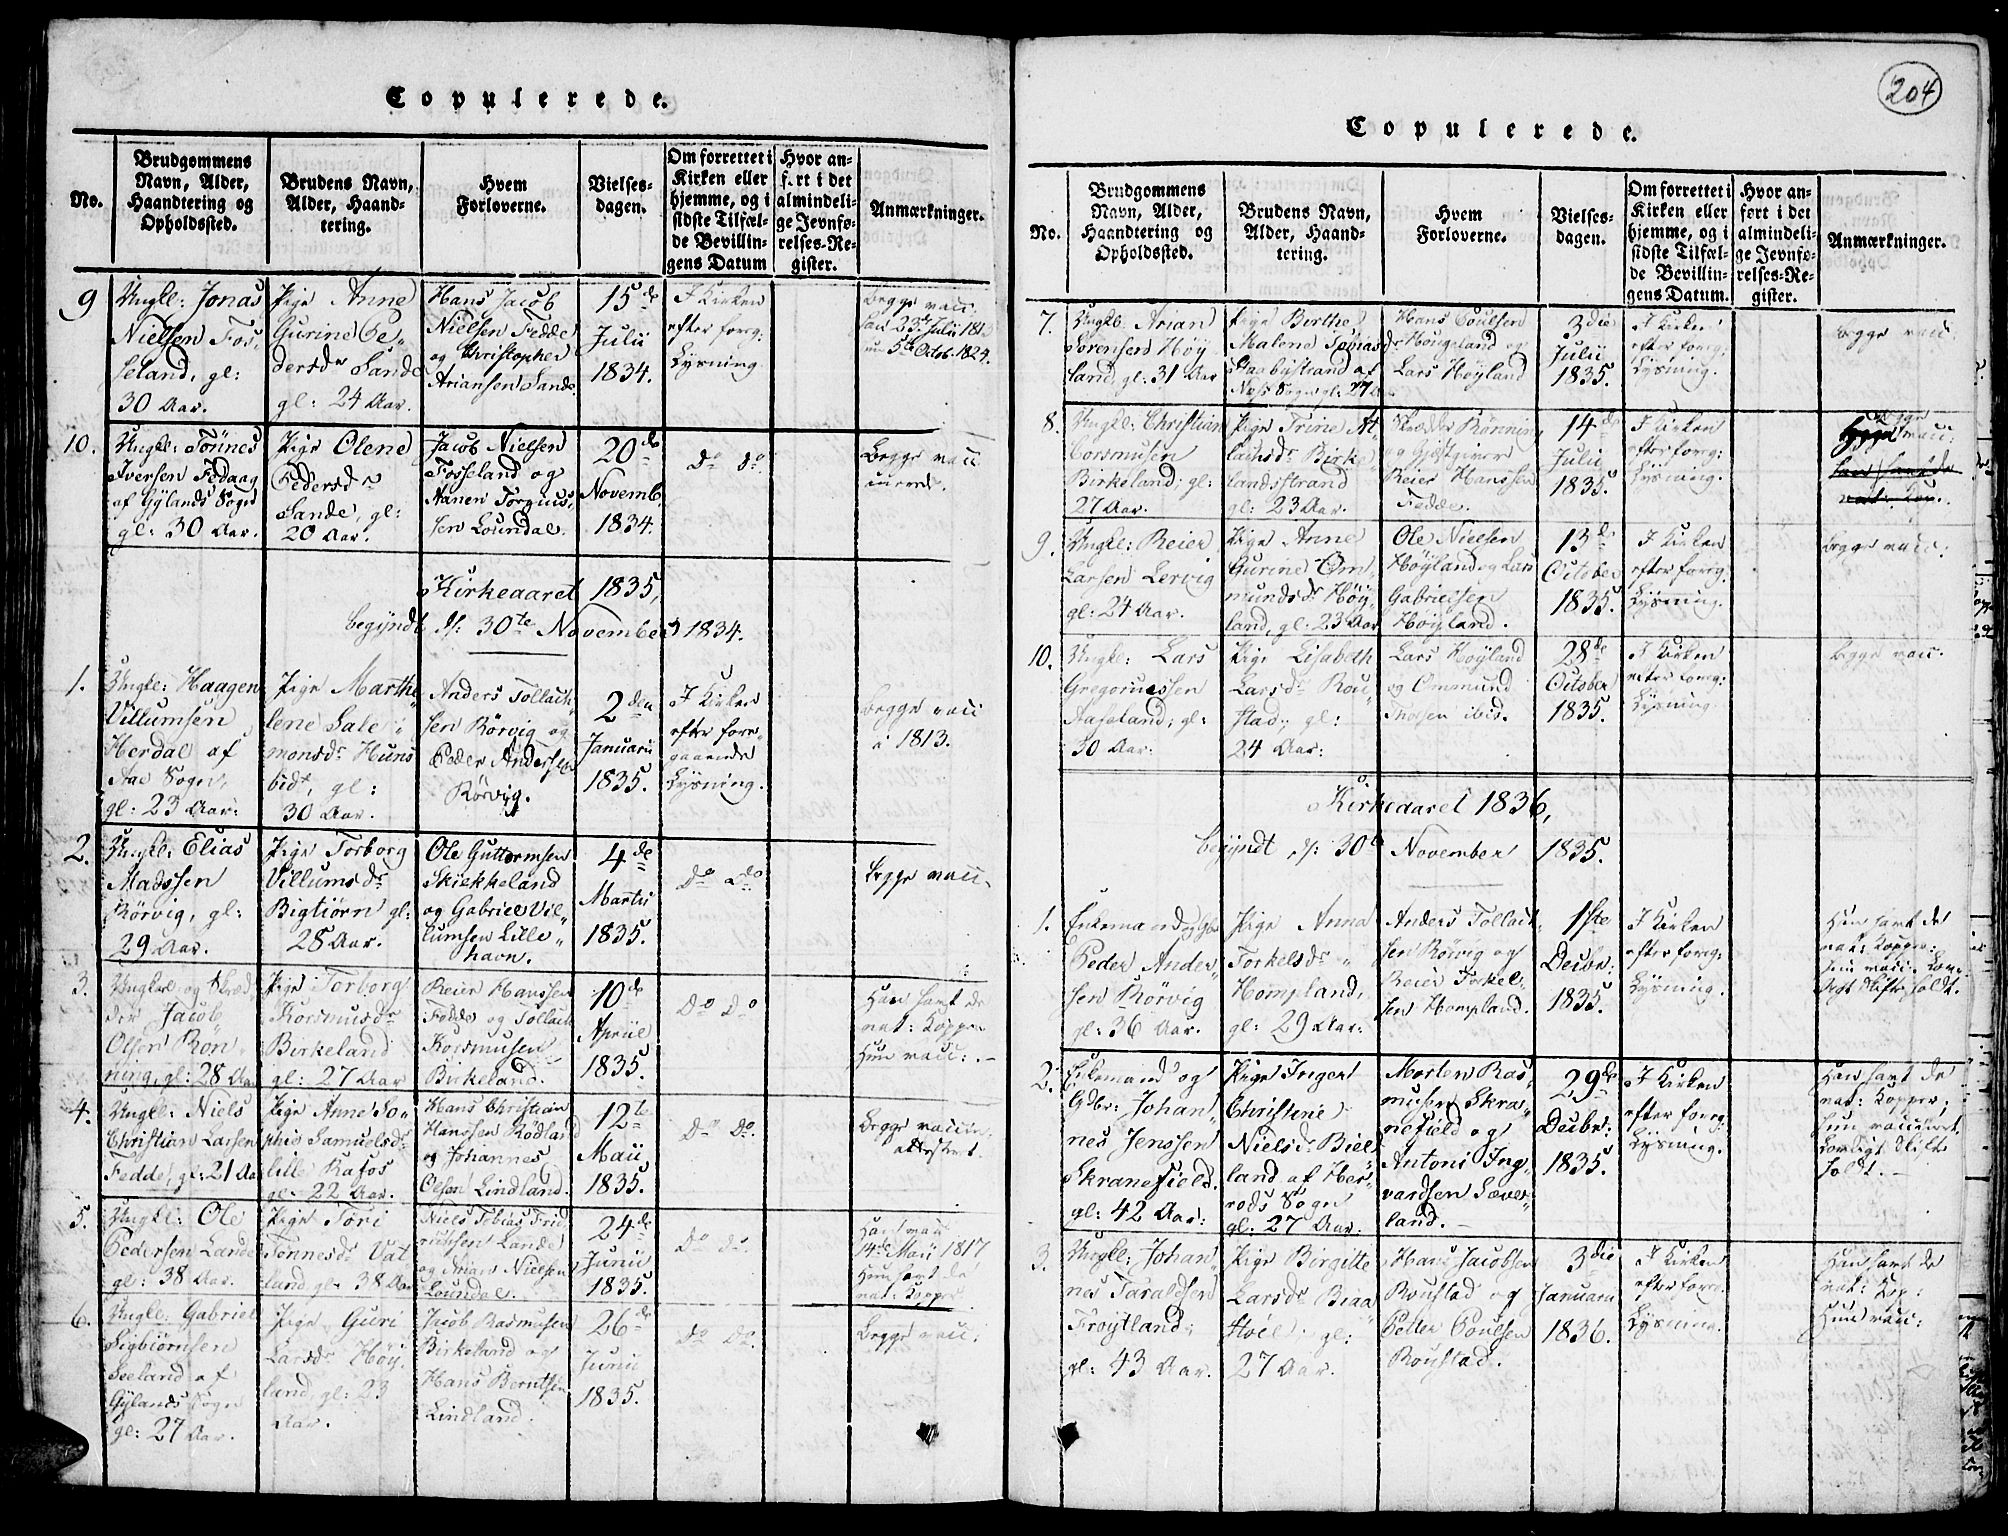 Copulerede.
No.
Brudgommens Navn, Alder, Haandtering og Opholdssted.
Brudens Navn, Alder, Haandtering.
Hvem Forloverne.
Vielsesdagen.
Om forrettet i Kirken eller hjemme, og i sidste Tilfælde Bevillingens Datum
Hvor anført i det almindelige Jevnførelses-Register.
Anmærkninger.
9
Ungk: Jonas
Nielsen Fosseland, gl:
30 Aar.
Pige Anne
Gurine Pedersdr Sande
gl: 24 Aar.
Hans Jacob
Nielsen Fedde
og Christopher
Ariansen Sande
15de
Julii
1834.
I Kirken
efter foreg:
Lysning
Begge vacc:
5te Octob. 1824.
10.
Ungk: Tönnes
Iversen Fedaag
af Gylands Sogn
gl: 30 Aar.
Pige Olene
Pedersdr
Sande, gl:
20 Aar.
Jacob Nielsen
Fosseland og
Nanen Torgiussen Loundal.
20de
Novemb.
1834.
Do Do
Begge vacc
Kirkeaaret 1835,
begyndt d: 30te November 1834.
1.
Ungk: Haagen
Villumsen
Herdal af
Aae Sogn,
gl: 23 Aar:
Pige Marthe
Lene Salemonsdr Hunsbidt, gl:
30 Aar.
Anders Tollachsen Rörvig og
Peder Andersen
Rörvig.
2den
Januarii
1835.
I Kirken
efter foregaaende
Lysning.
Begge vacc
à 1813.
2.
Ungk: Elias
Madssen
Rörvig, gl:
29 Aar.
Pige Torborg
Villumsdr
Bigtiörn gl:
28 Aar.
Ole Guttormsen
Skiekkeland
og Gabriel Villumsen Lillehavn.
4de
Martii
1835.
Do Do
Begge vacc.
3.
Ungkarl og Skræder Jacob
Olsen Rönning, gl: 28 Aar
Pige Torborg
Korsmusdr
Birkeland
gl: 27 Aar
Reier Hanssen
Fedde og Tollach
Korsmusen
Birkeland.
10de
April
1835.
Do Do
Han havt de
nat: Kopper
Hun vacc:.
4.
Ungk: Niels
Christian Larsen
Fedde, gl: 21 Aar
Pige Anne Sophie Samuelsdr
lille Rafos
gl: 22 Aar.
Hans Christian
Hanssen Rödland
og Johannes
Olsen Lindland.
12te
Maii
1835.
Do Do.
Begge vaccin:
attesteret.
5.
Ungk: Ole
Pedersen Lande
gl: 38 Aar.
Pige Töri
Tönnesdr Vatland gl: 38 Aar
Niels Tobias Fridrichsen Lande
og Anan Nielsen
Loundal.
24de
Junii
1835.
Do Do.
Han vacc
14de Maii 1817
Hun havt de
nat: Kopper
6.
Ungk: Gabriel
Sigbiörnsen
Seeland af
Gylands Sogn
gl: 27 Aar.
Pige Guri
Larsdr Höyland, gl: 23
Aar.
Jacob Rasmusen
Birkeland og
Hans Berntsen
Lindland.
26de
Junii
1835.
Do Do.
Begge vacc.
204
Copulerede.
No.
Brudgommens Navn, Alder, Haandtering og Opholdssted.
Brudens Navn, Alder, Haandtering.
Hvem Forloverne.
Vielsesdagen.
Om forrettet i Kirken eller hjemme, og i sidste Tilfælde Bevillingens Datum.
Hvor anført i det almindelige Jevnførelses-Register.
Anmærkninger.
7.
Ungk: Arian
Sörensen Höyland, gl: 31 Aar
Pige Birthe
Malene Tobiasdr
Stabystrand af
Næs Sogn gl: 27
Hans Poulsen
Hougeland og
Lars Höyland
3die
Julii
1835.
I Kirken
efter foreg:
Lysning.
Begge vacc:
8.
Ungk: Christian
Corsmusen
Birkeland, gl:
27 Aar.
Pige Trine Atlachsdr Birkelandsstrand
gl: 23 Aar.
Skræder Rönning
og Giæstgiver
Reier Hanssen
Fedde.
14de
Julii
1835.
I Kirken
efter foreg:
Lysning.
Begge
vacc:
9.
Ungk: Reier
Larsen Lervig
gl: 24 Aar.
Pige Anne
Gurine Ommundsdr Höyland, gl: 23 Aar
Ole Nielsen
Höyland og Lars
Gabrielsen
Höyland.
13de
October
1835.
I Kirken
efter foreg.
Lysning.
Begge vacc:
10.
Ungk: Lars
Gregoriussen
Aafeland; gl:
30 Aar:
Pige Lisabeth
Larsdr Roustad, gl:
24 Aar:
Lars Höyland
og Ommund
Thorsen ibid.
28de
October
1835.
I Kirken
efter foreg:
Lysning.
Begge vacc.
Kirkeaaret 1836,
begyndt d: 30te November 1835.
1.
Enkemand og Gbr
Peder Andersen Rörvig
gl: 36 Aar.
Pige Anna
Torkelsdr
Hompland,
gl: 29 Aar:
Anders Tollachsen Rörvig og
Reier Torkelsen Hompland.
1ste
Decbr:
1835.
I Kirken
efter foreg:
Lysning.
Han havt de
nat: Kopper:
hun vacc. Lovligt Skifte holdt.
2.
Enkemand og
Gdbr: Johannes Jenssen
Skranefield.
gl: 42 Aar:
Pige Inger
Christine
Nielsdr Bielland af Herrods Sogn
gl: 27 Aar.
Morten Rasmusen Skranefield og
Antoni Ingvardsen Sæveland.
29de
Decbr:
1835.
I Kirken
efter foreg:
Lysning.
Han havt de
nat: Kopper;
hun vaccineret.
Lovligt Skifte
holdt.
3.
Ungk: Johannes Taraldsen
Fröytland,
gl: 43 Aar.
Pige Birgitte
Larsdr Braastöel, gl:
27 Aar.
Hans Jacobsen
Roustad og
Petter Poulsen
Roustad.
3die
Januarii
1836.
I Kirken
efter foreg.
Lysning.
Han havt de
nat: Kop:
Hun vacc: